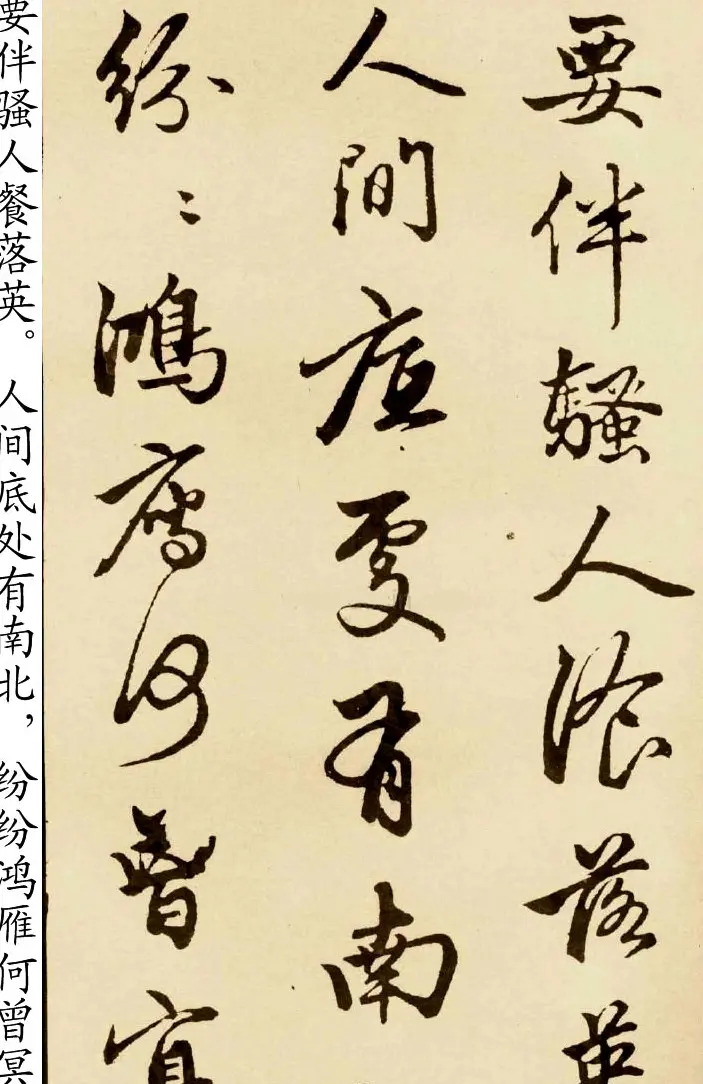 要伴骚人餐落英。 人间底处有南北， 纷纷鸿雁何曾冥
要伴騷人湌落英
人間底處有南
紛〻鴻雁何曾冥